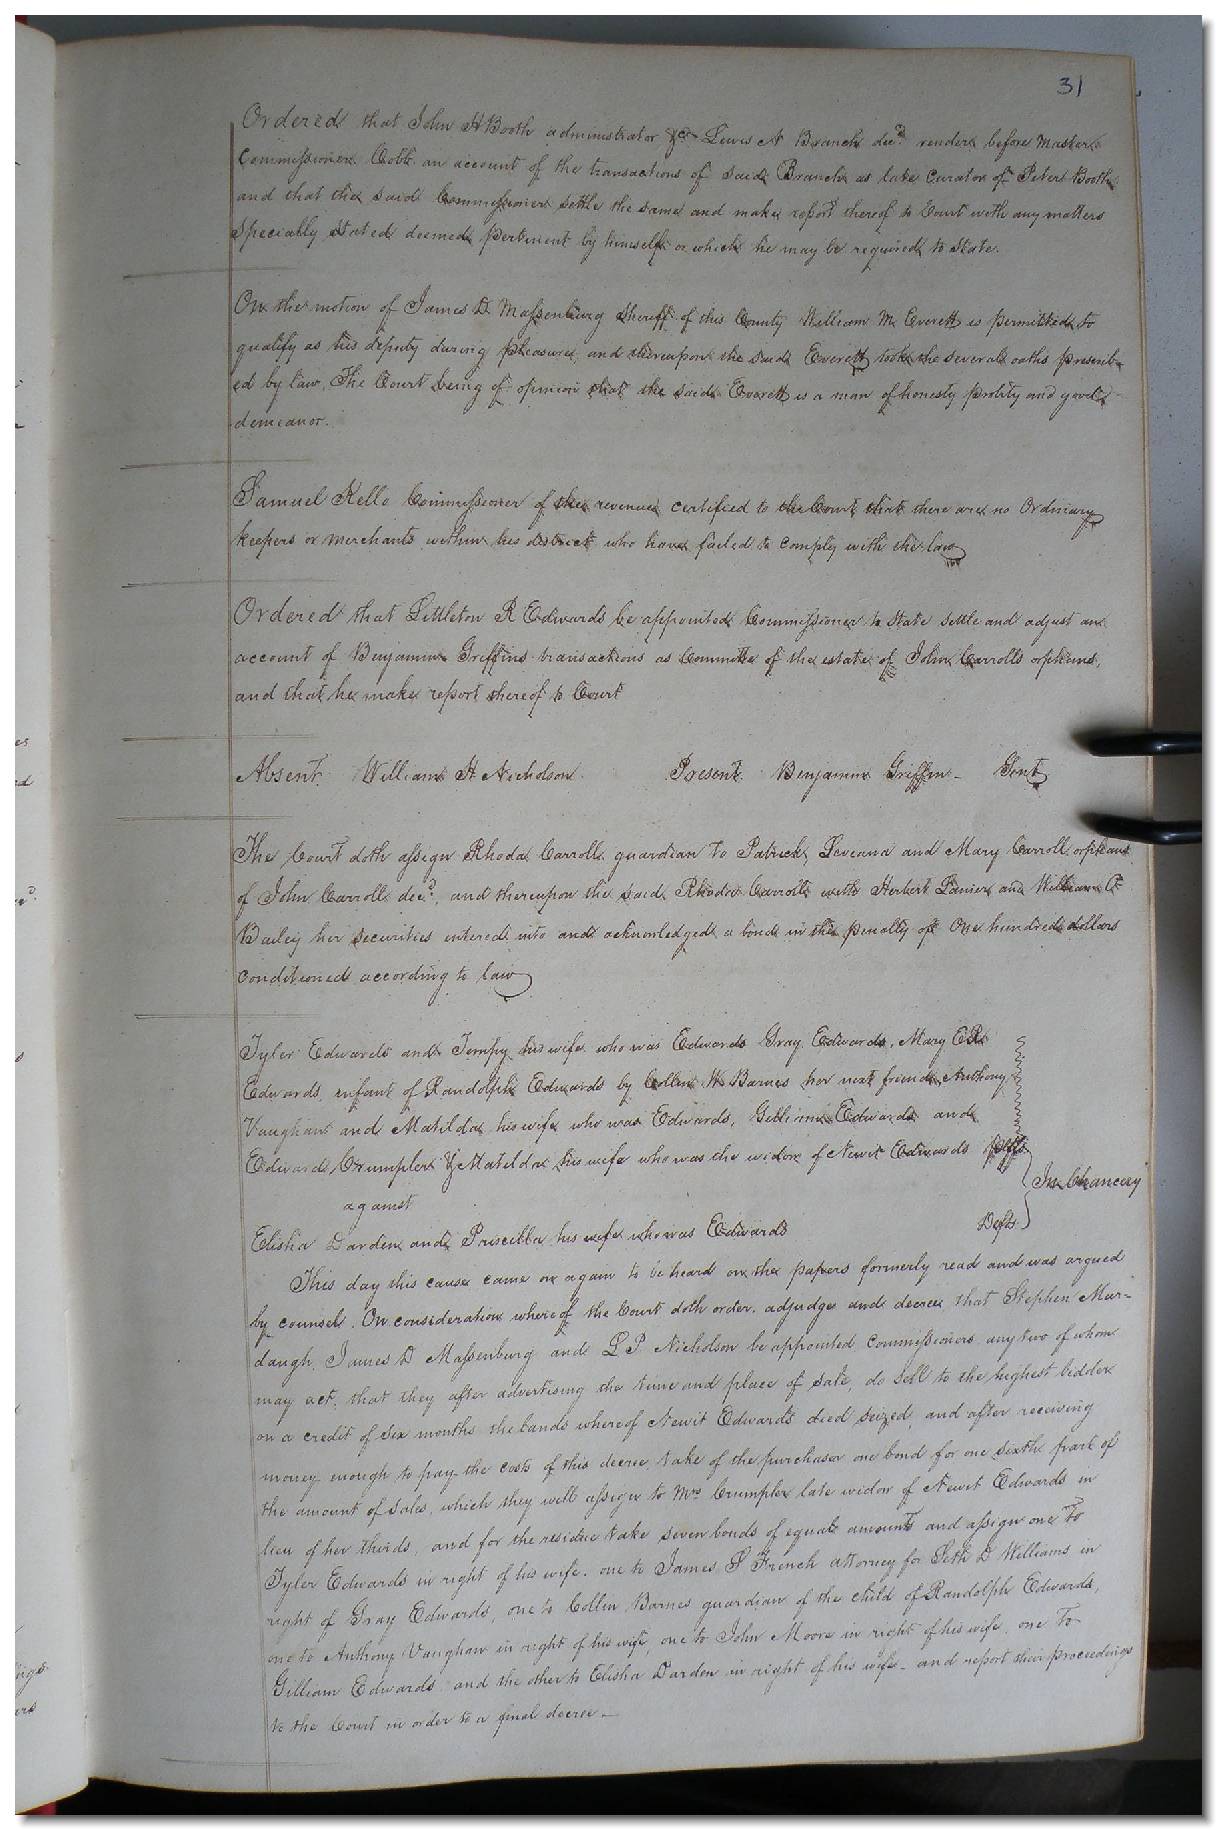 31
Ordered that John H Booth administrator &c Lewis N Branch decd render before Master
Commissioner Cobb an account of the transactions of said Branch as late Curator of Peter Booth
and that the said Commissioner settle the same and make report thereof to Court with any matters
specially stated deemed pertinent by himself or which he may be required to state.
On the motion of James D Massenburg Sheriff of this County William M Everett is permitted to
qualify as his deputy during pleasure, and thereupon the said Everett took the several oaths prescrib-
ed by law, The Court being of opinion that the said Everett is a man of honesty probity and good
demeanor.
Samuel Kello Commissioner of the revenue certified to the Court that there are no Ordinary
keepers or merchants within his district who have failed to comply with the law
Ordered that Littleton R Edwards be appointed Commissioner to state settle and adjust an
account of Benjamin Griffins transactions as Committee of the estate of John Carrolls orphans,
and that he make report thereof to Court
Absent William H Nicholson Present Benjamin Griffin - Gent
The Court doth assign Rhoda Carroll guardian to Patrick, Leverna and Mary Carroll orphans
of John Carroll decd, and thereupon the said Rhoda Carroll with Herbert Lanier and William
Bailey her securities entered into and acknowledged a bond in the penalty of One hundred dollars
conditioned according to law
Tyler Edwards and Tempy his wife who was Edwards Gray Edwards, Mary E R
Edwards, infant of Randolph Edwards by Collin W Barnes her next friend, Anthony
Vaughan and Matilda his wife who was Edwards, Gilliam Edwards and
Edwards Crumpler & Matilda his wife who was the widow of Newit Edwards Plffs
In Chancery
against
Elisha Darden and Priscilla his wife who was Edwards Defts
This day this cause came on again to be heard on the papers formerly read and was argued
by counsel. On consideration whereof the Court doth order, adjudge and decree that Stephen Mur-
daugh, James D Massenburg and L P Nicholson be appointed commissioners any two of whom
may act, that they after advertising the time and place of sale, do sell to the highest bidder
on a credit of six months the lands whereof Newit Edwards died seized, and after receiving
money enough to pay the costs of this decree, take of the purchaser one bond for one sixth part of
the amount of sales, which they will assign to Mrs Crumpler late widow of Newit Edwards in
lieu of her thirds, and for the residue take seven bonds of equal amounts and assign one To
Tyler Edwards in right of his wife. one to James S French attorney for Seth D Williams in
right of Gray Edwards, one to Collin Barnes guardian of the child of Randolph Edwards,
one to Anthony Vaughan in right of his wife, one to John Moore in right of his wife, one To
Gilliam Edwards and the other to Elisha Darden in right of his wife - and report their proceedings
to the Court in order to a final decree -